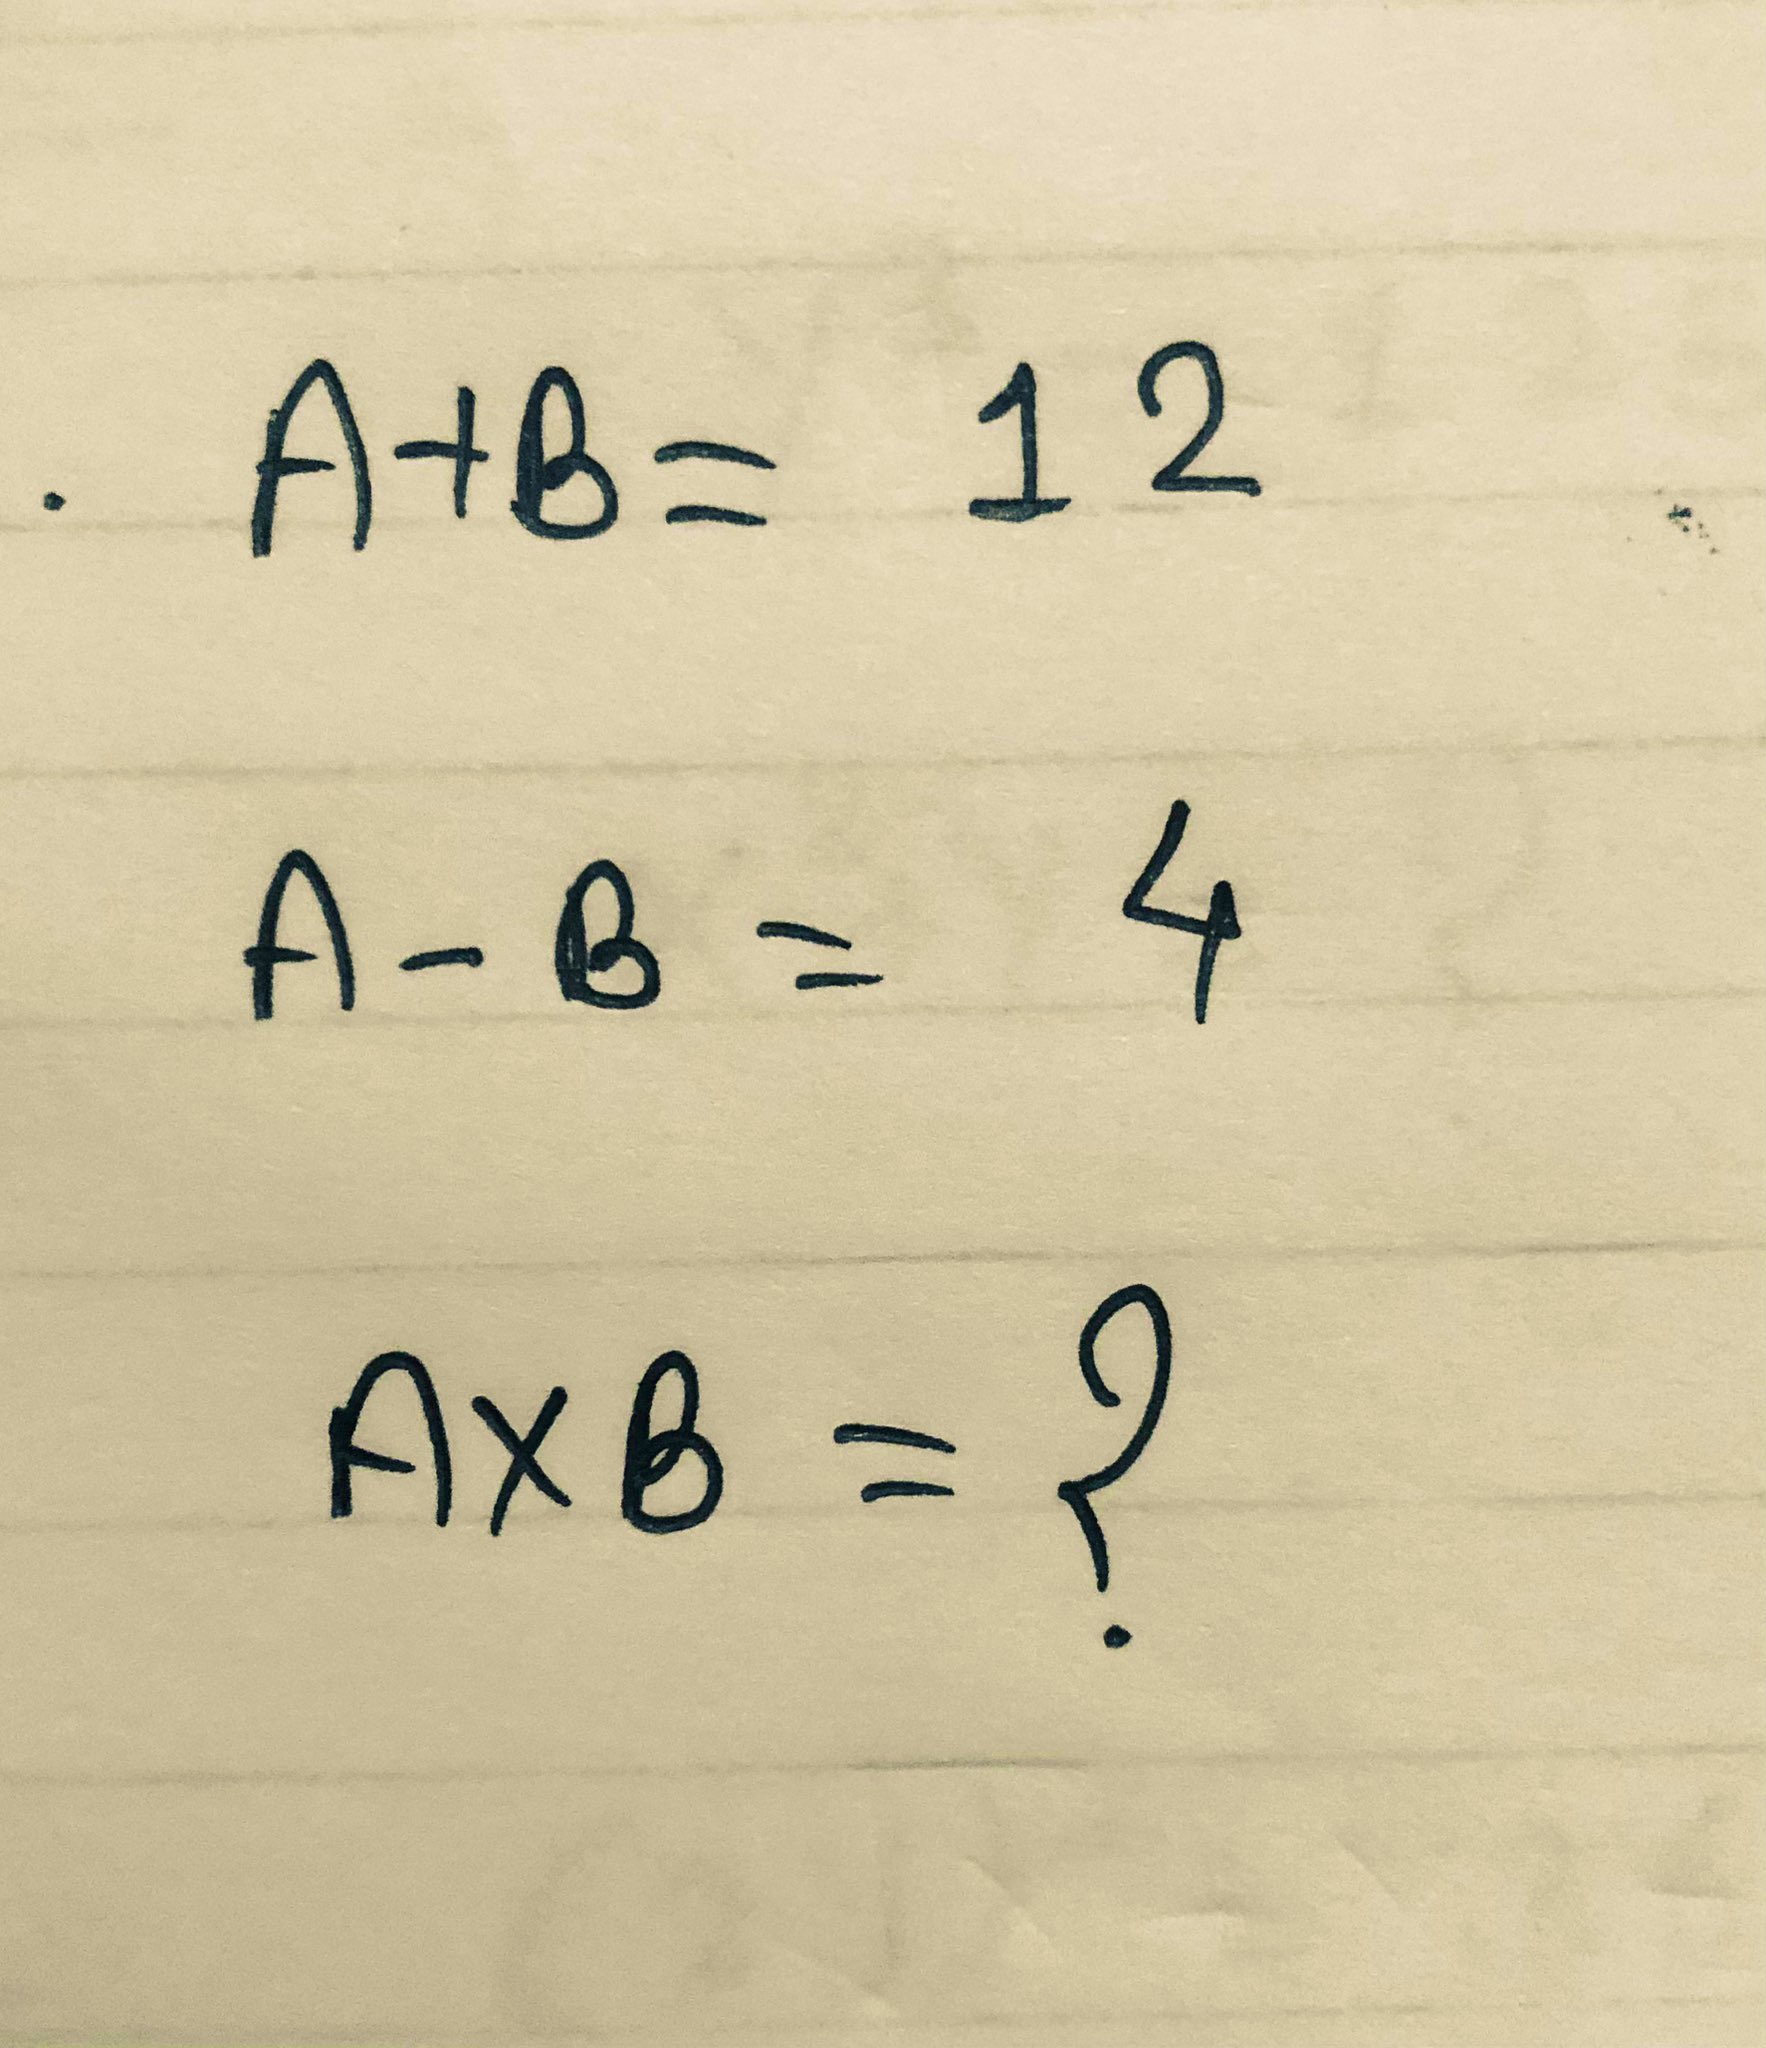 A+B= 12
A-B= 4
A×B=?